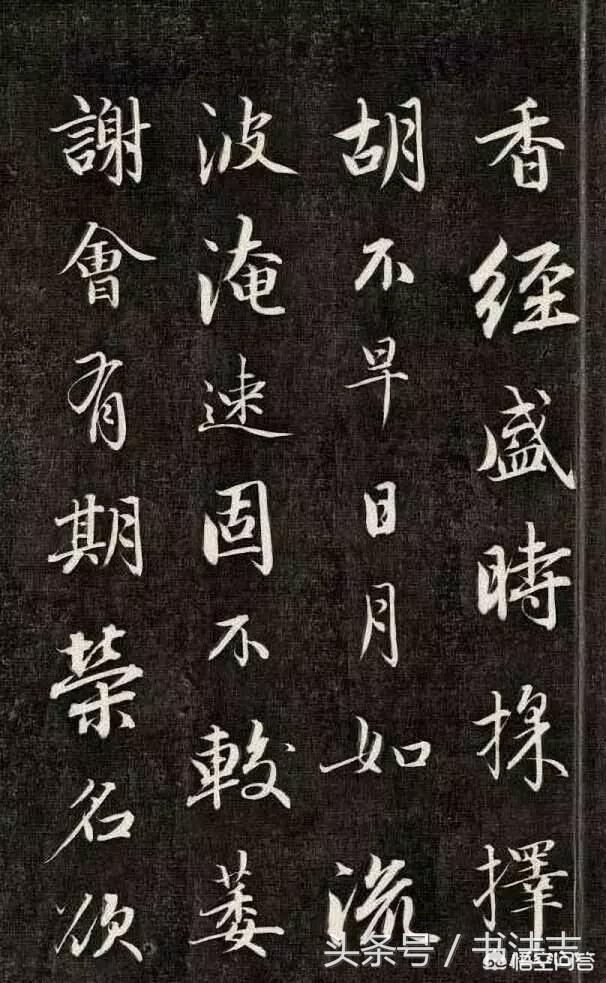 香經盛時採擇
胡不早日月如流
波淹速固不較萎
謝會有期榮名欲
头条号 / 书法
悟空问答